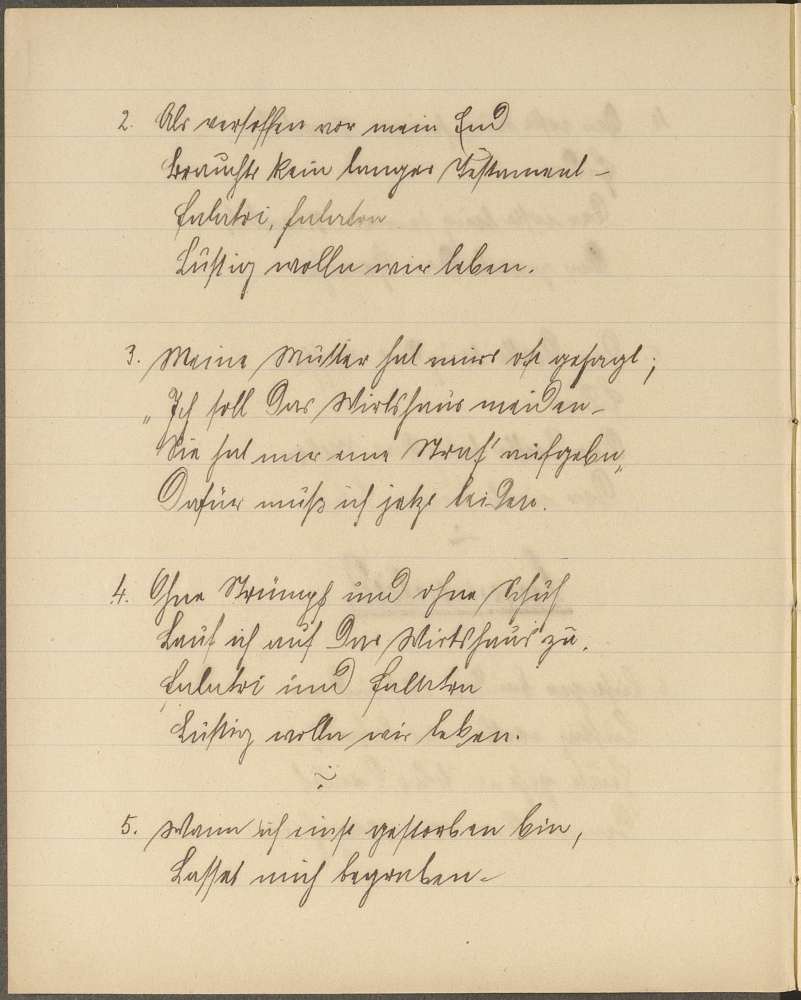 2. Als versoffen vor mein End
Brauchts kein langes Testament –
Falatri, falatra
Lustig wolln wir leben.
3. Meine Mutter hat mirs oft gesagt;
„Ich soll das Wirtshaus meiden –
Sie hat mir eine Straf' aufgebn,
Dafür muß ich jetzt leiden.
4. Ohne Strümpf und ohne Schuh
Lauf ich auf das Wirtshaus zu.
Falatri und Falatra
Lustig wolln wir leben.
5. Wann ich einst gestorben bin,
Lasset mich begraben –